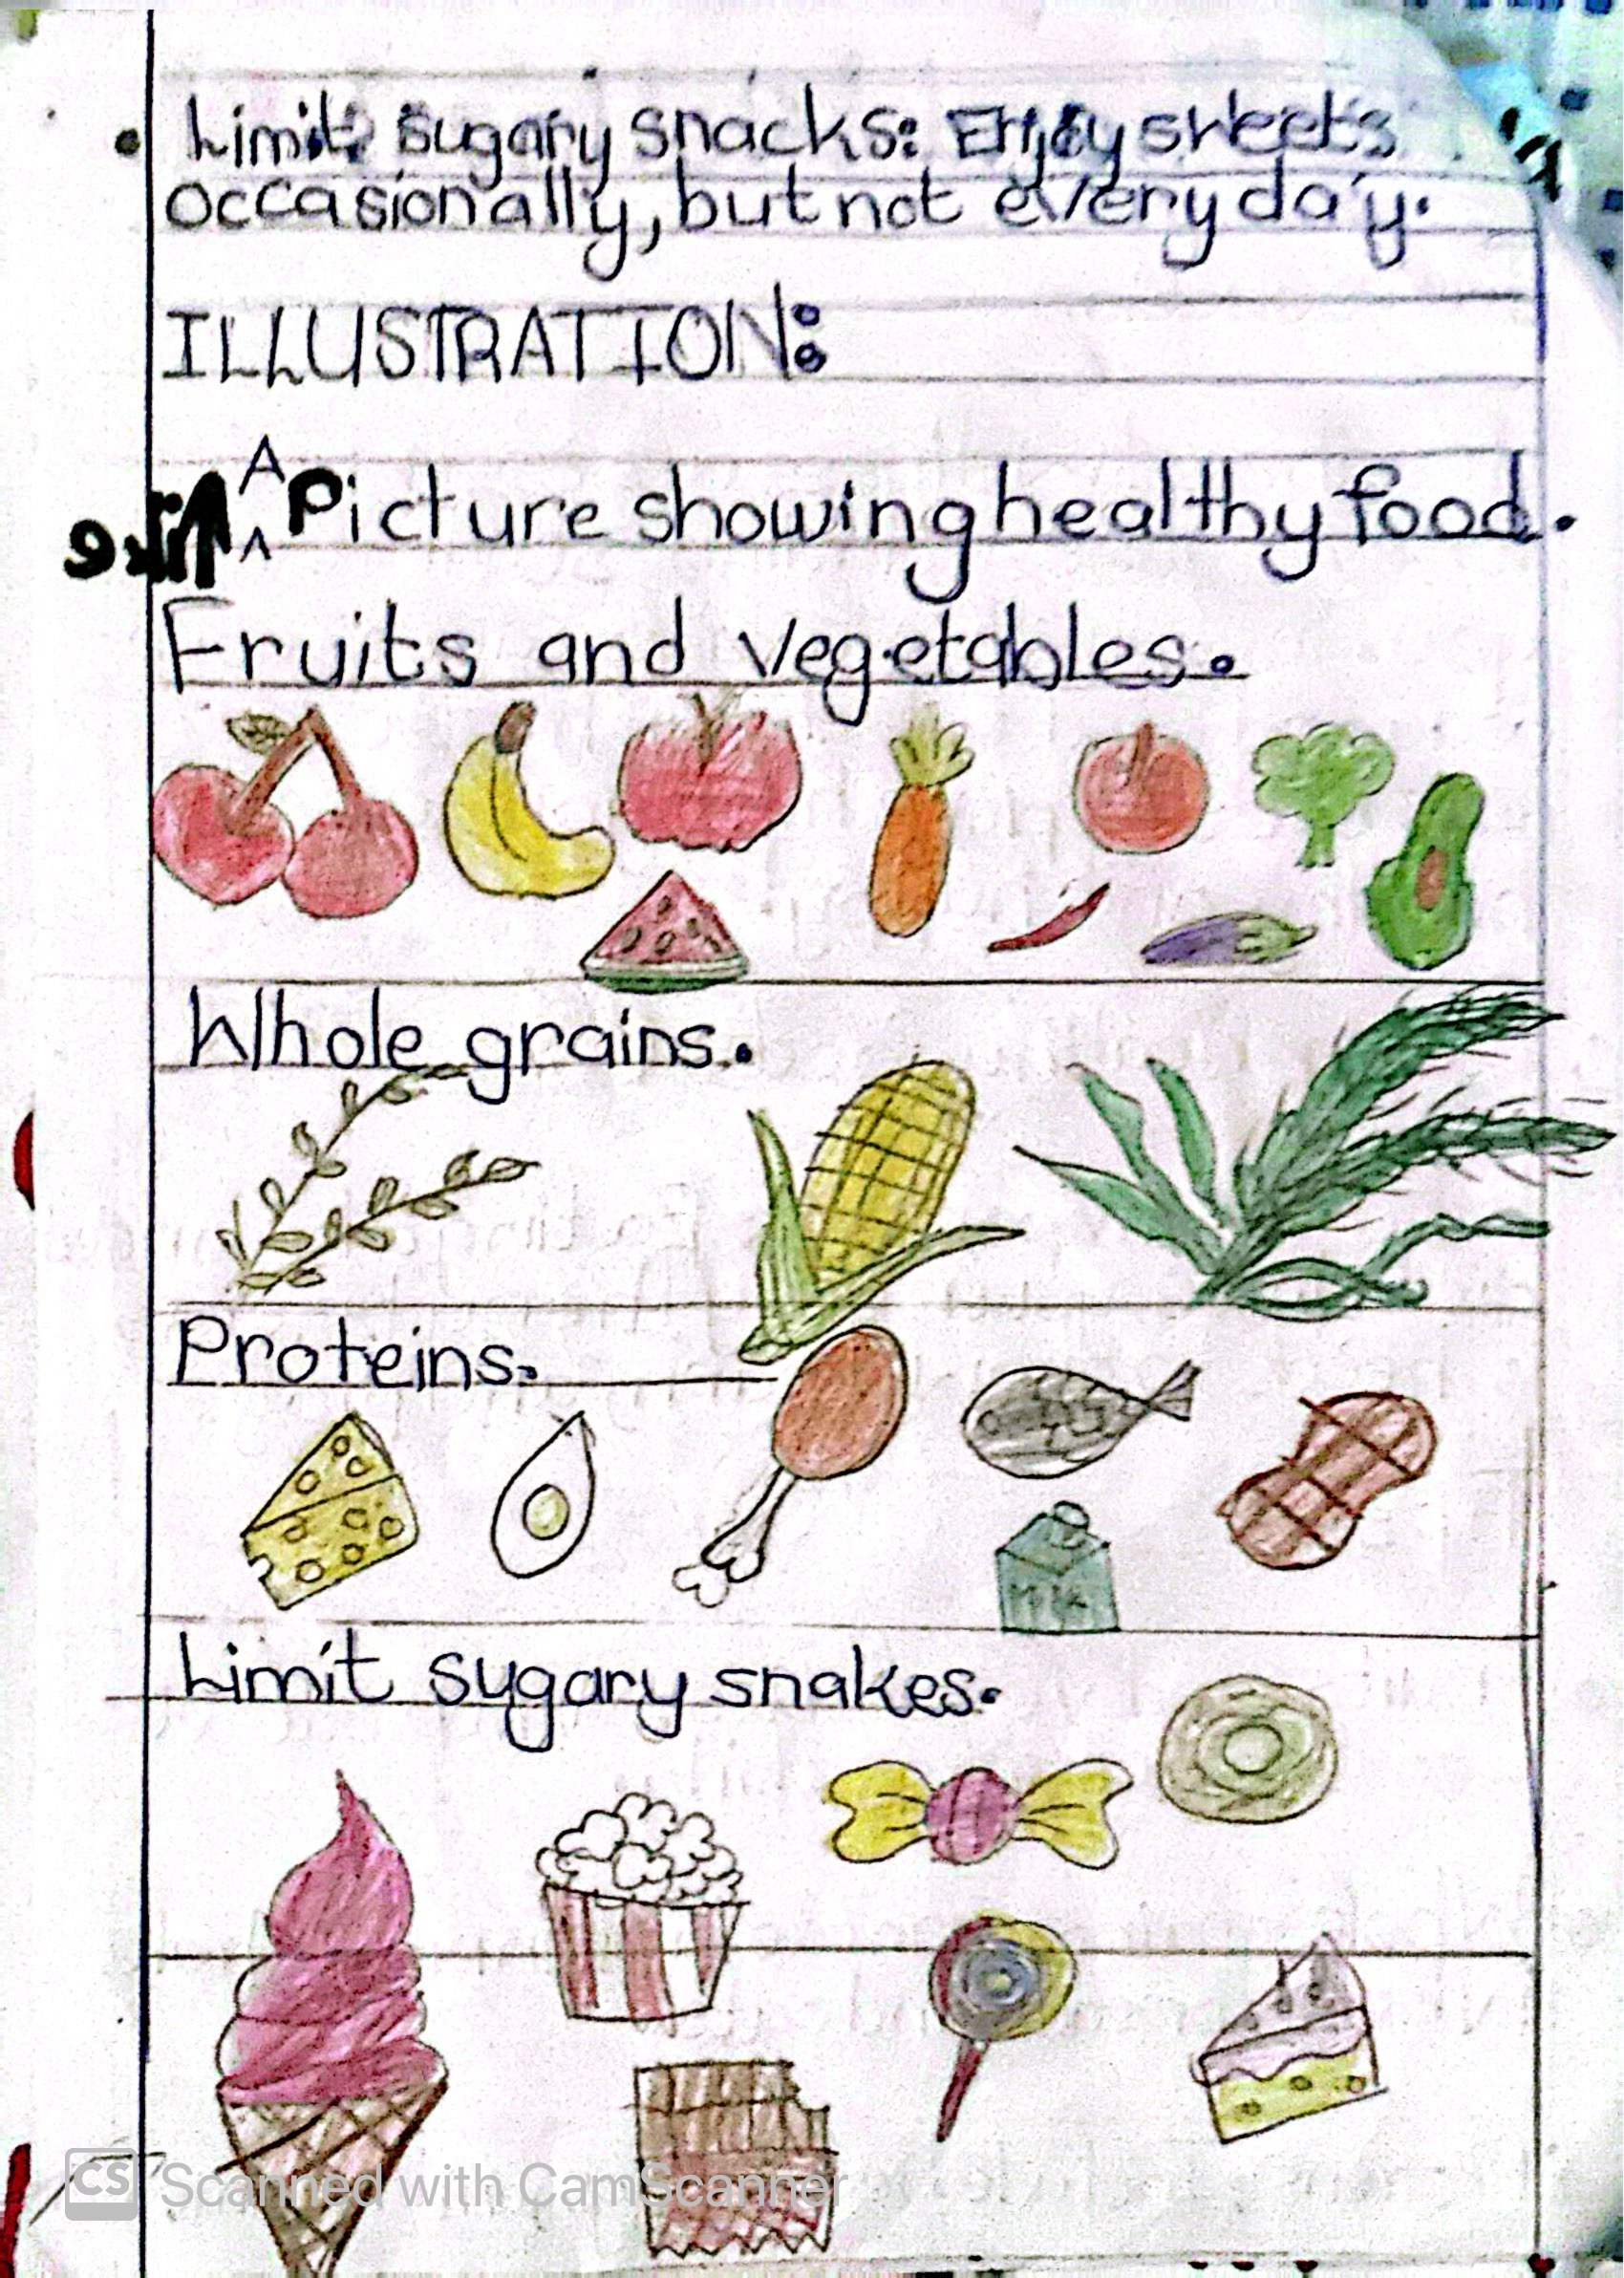 • Limit sugary snacks: Enjoy sweets
occasionally, but not every day.
ILLUSTRATION:
A
^ Picture showing healthy food.
Fruits and vegetables.
Whole grains.
Proteins.
Milk
Limit sugary snakes.
CS Scanned with CamScanner